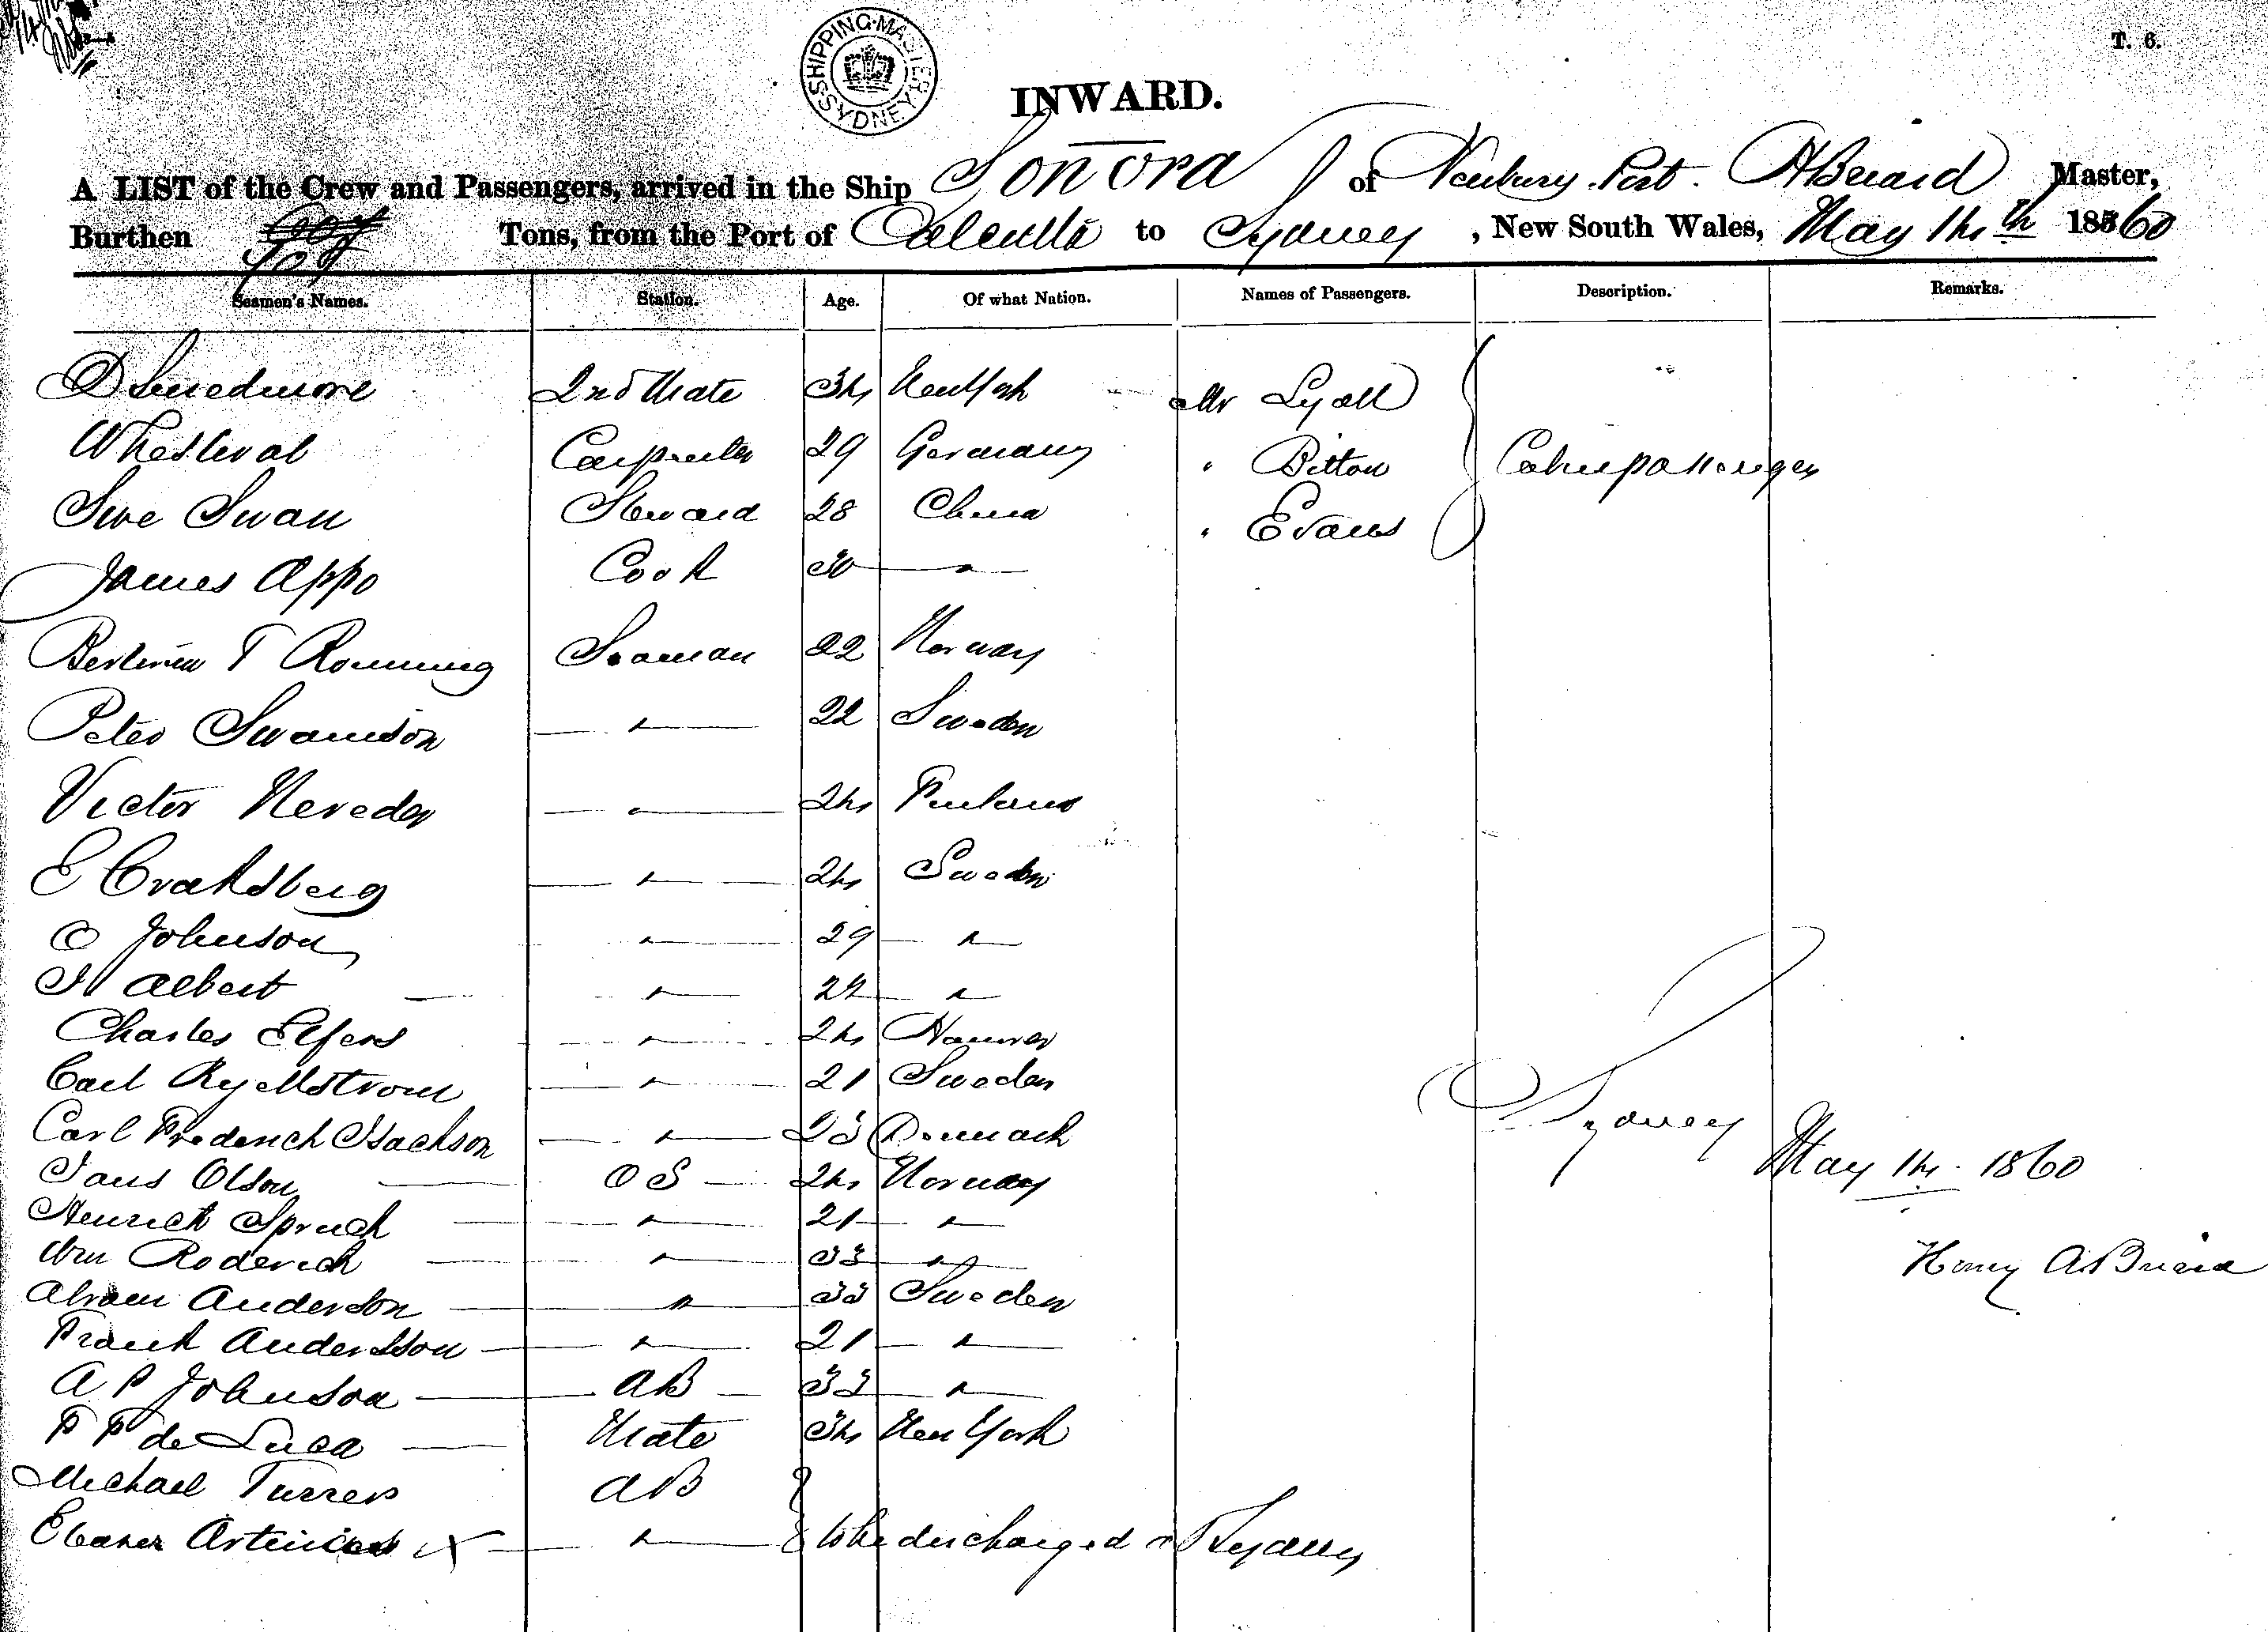 SHIPPING MASTER SYDNEY
T. 6.
INWARD.
A LIST of the Crew and Passengers, arrived in the Ship Sonora of Newbury Port. Master,
Burthen 708 Tons, from the Port of Calcutta to Sydney, New South Wales, May 14th 1860
Seamen's Names. Station. Age. Of what Nation. Names of Passengers. Description. Remarks.
2nd Mate 34 New York Mr Lyall
Carpenter 29 Germany " Bitton Cabin passenger
Swe Swan Steward 28 China " Evans
James Appo Cook 30 "
T Ronning Seaman 22 Norway
Peter Swanson " 22 Sweden
Victor " 24 Finland
E " 24 Sweden
C Johnson " 29 "
Albert " 22 "
Charles Elfers " 24 Hanover
Carl Ryellstrom " 21 Sweden
Carl Frederich Isackson " 23 Denmark
Sydney May 14. 1860
Jans Olson O S 24 Norway
Henrick " 21 "
Wm Roderick " 33 "
Henry A
Abram Anderson " 33 Sweden
Frank Andersson " 21 "
A P Johnson AB 33 "
F F de Luca Mate 34 New York
Michael AB
X " to be discharged in Sydney